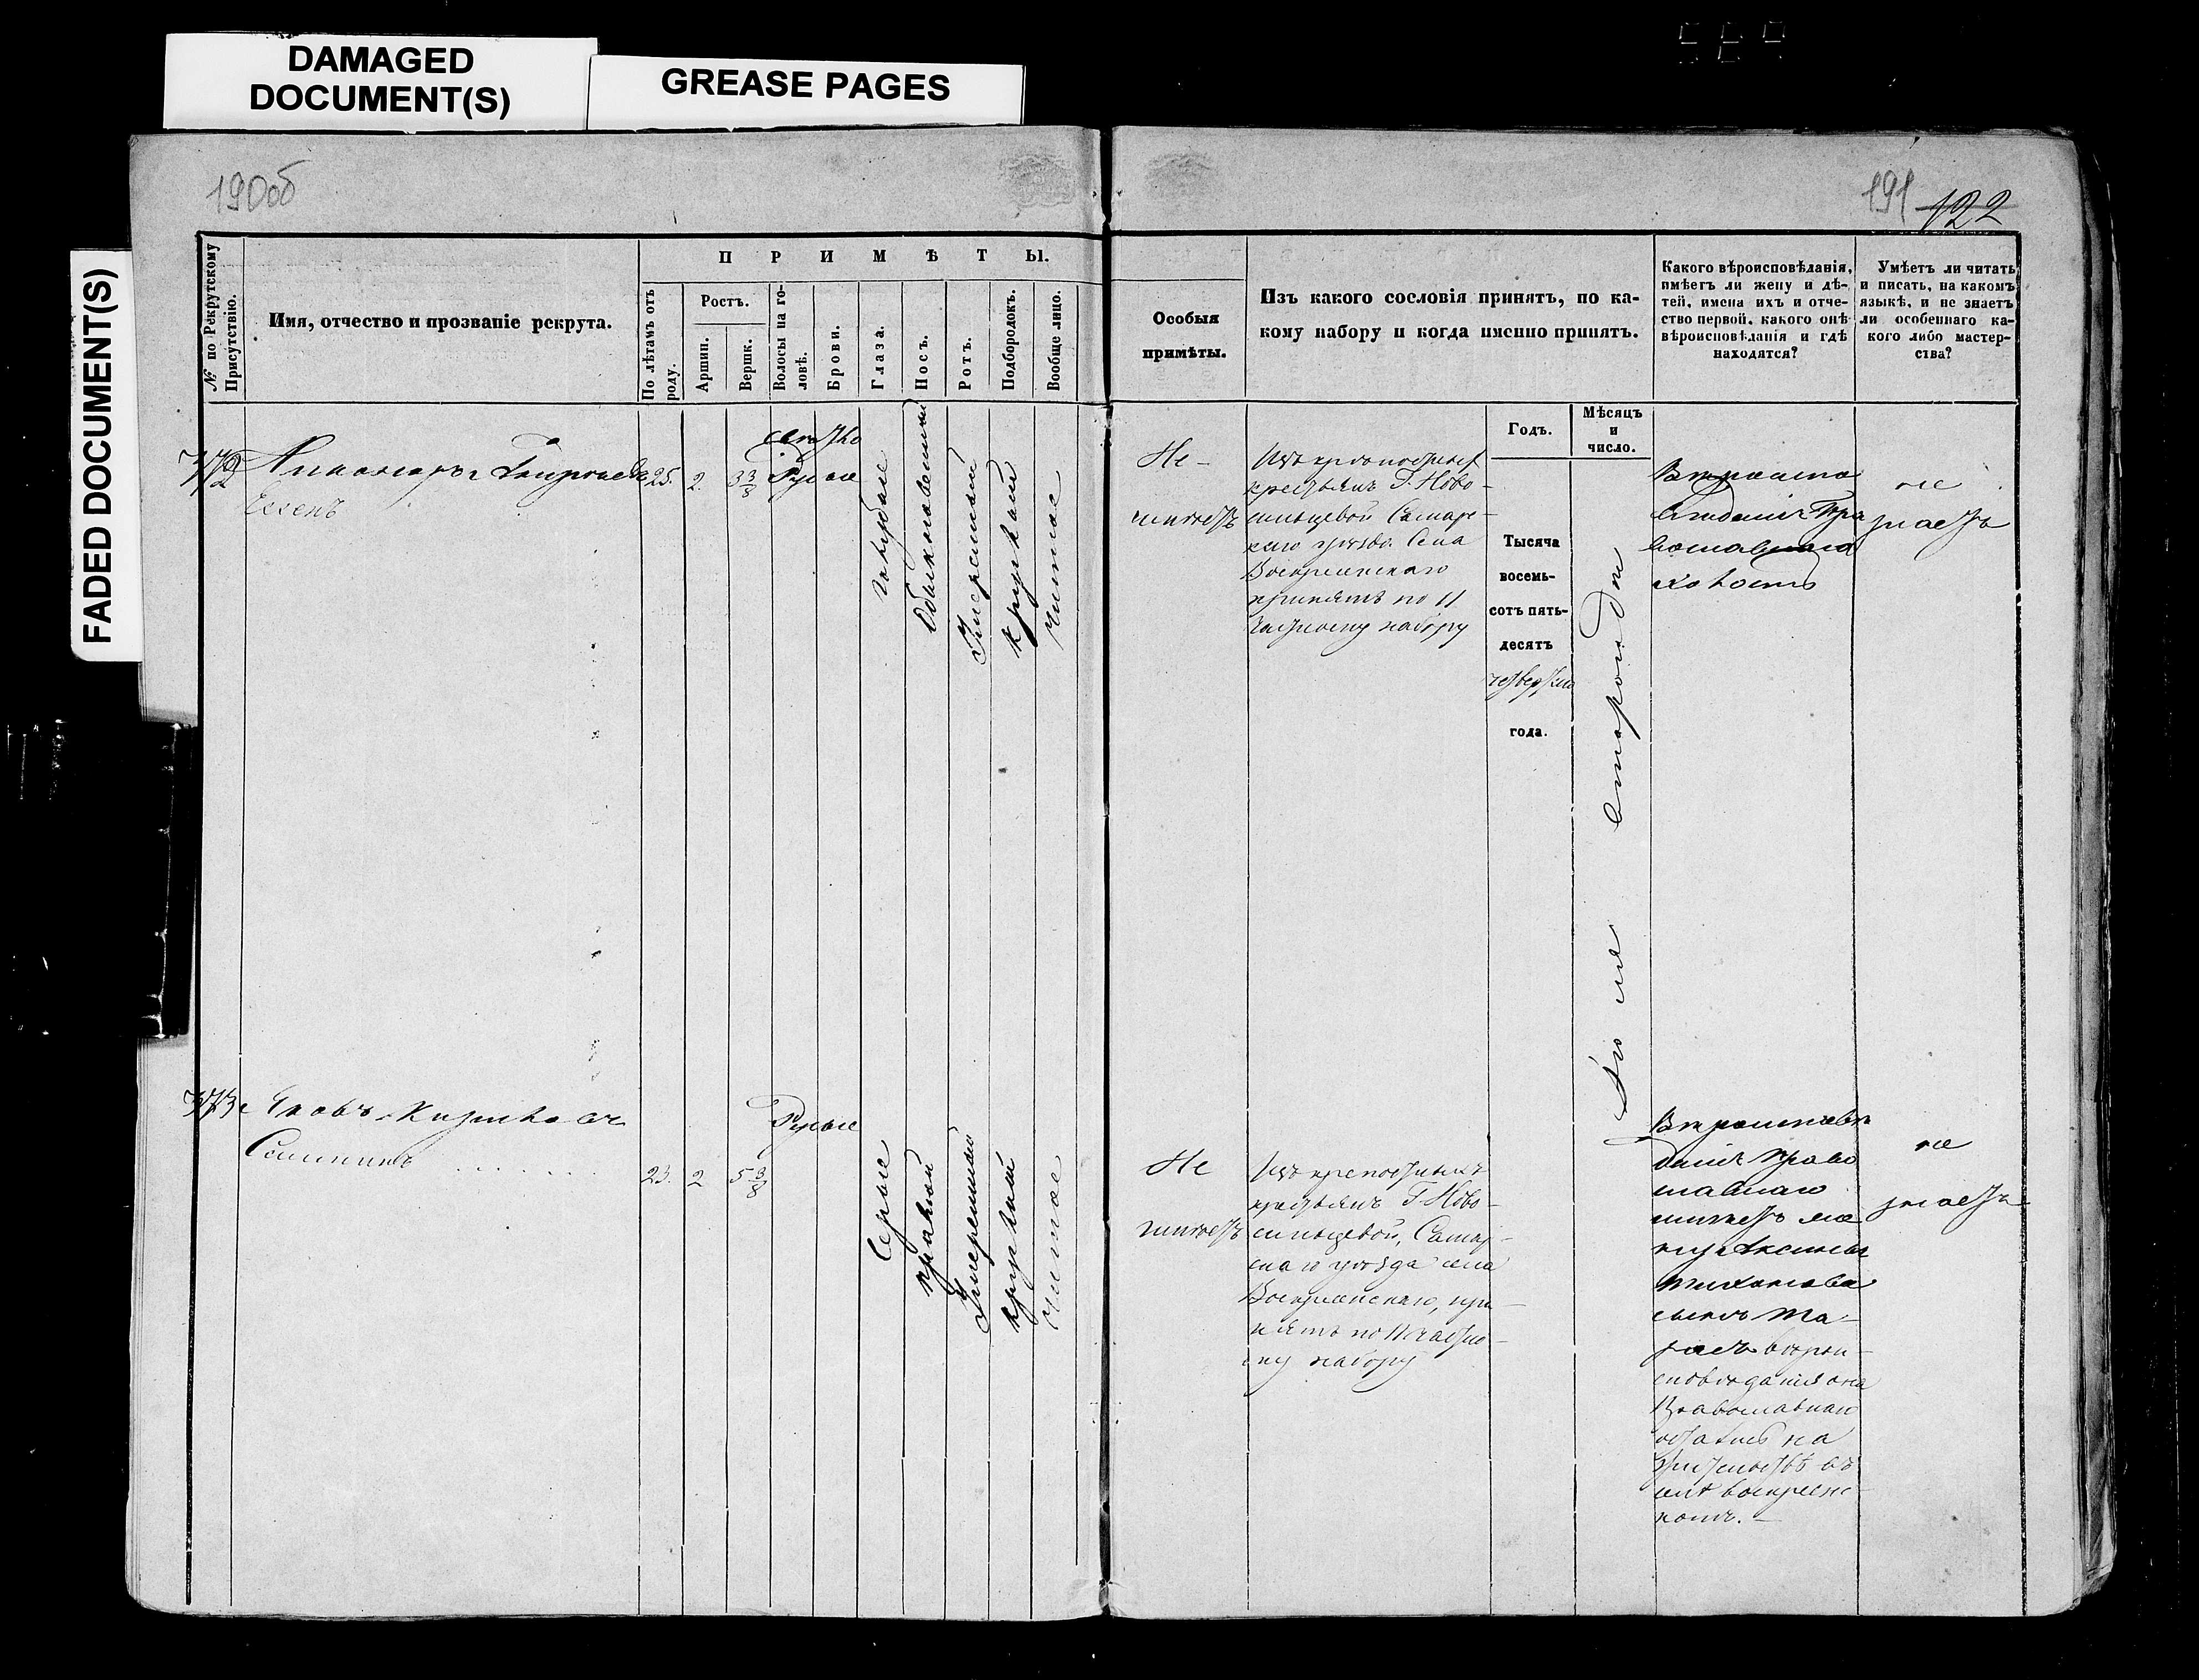 DAMAGED
DOCUMENT(S)
GREASE PAGES
FADED DOCUMENT(S)
190об
191 122
№ по Рекрутскому
Присутствію.
Имя, отчество и прозваніе рекрута.
ПРИМѢТЫ.
По лѣтамъ отъ
роду.
Ростъ.
Аршин.
Вершк.
Волосы на го-
ловѣ.
Брови.
Глаза.
Носъ.
Ротъ.
Подбородокъ.
Вообще лицо.
Особыя
примѣты.
Изъ какого сословія принятъ, по ка-
кому набору и когда именно принятъ.
Какого вѣроисповѣданія,
имѣетъ ли жену и дѣ-
тей, имена ихъ и отче-
ство первой, какого онѣ
вѣроисповѣданія и гдѣ
находятся?
Умѣетъ ли читать
и писать, на какомъ
языкѣ, и не знаетъ
ли особеннаго ка-
кого либо мастер-
ства?
Годъ.
Мѣсяцъ
и
число.
372
25.
2.
3 3/8
свѣтло
Русые
голубые
обыкновенный
Умеренный
круглый
чистое
Не
имѣетъ
Изъ крѣпостныхъ
крестьянъ Г. Ново-
сильцевой Самарс-
каго уѣзда Села
Воскресенскаго
принятъ по 11
частному набору
Тысяча
восемь-
сотъ пять-
десятъ
четвертаго
года.
Іюля
Вѣроиспо
вѣданія Пра
вославнаго
холостъ
не
знаетъ
373
Яковъ
23.
2
5 3/8
Русые
Серые
прямой
Умеренный
круглый
чистое
Не
имѣетъ
Изъ крепостныхъ
крестьянъ Г. Ново-
сильцевой, Самар-
скаго уѣзда села
Воскресенскаго, при-
нятъ по 11 частно-
му набору
Вѣроисповѣ
данія Право
славнаго
имѣетъ же
ну Аксинья
Тихонова
сынъ
вѣрои-
сповѣданія она
Православнаго
осталис на
жительствѣ въ
селѣ воскресенс
комъ.
не
знаетъ